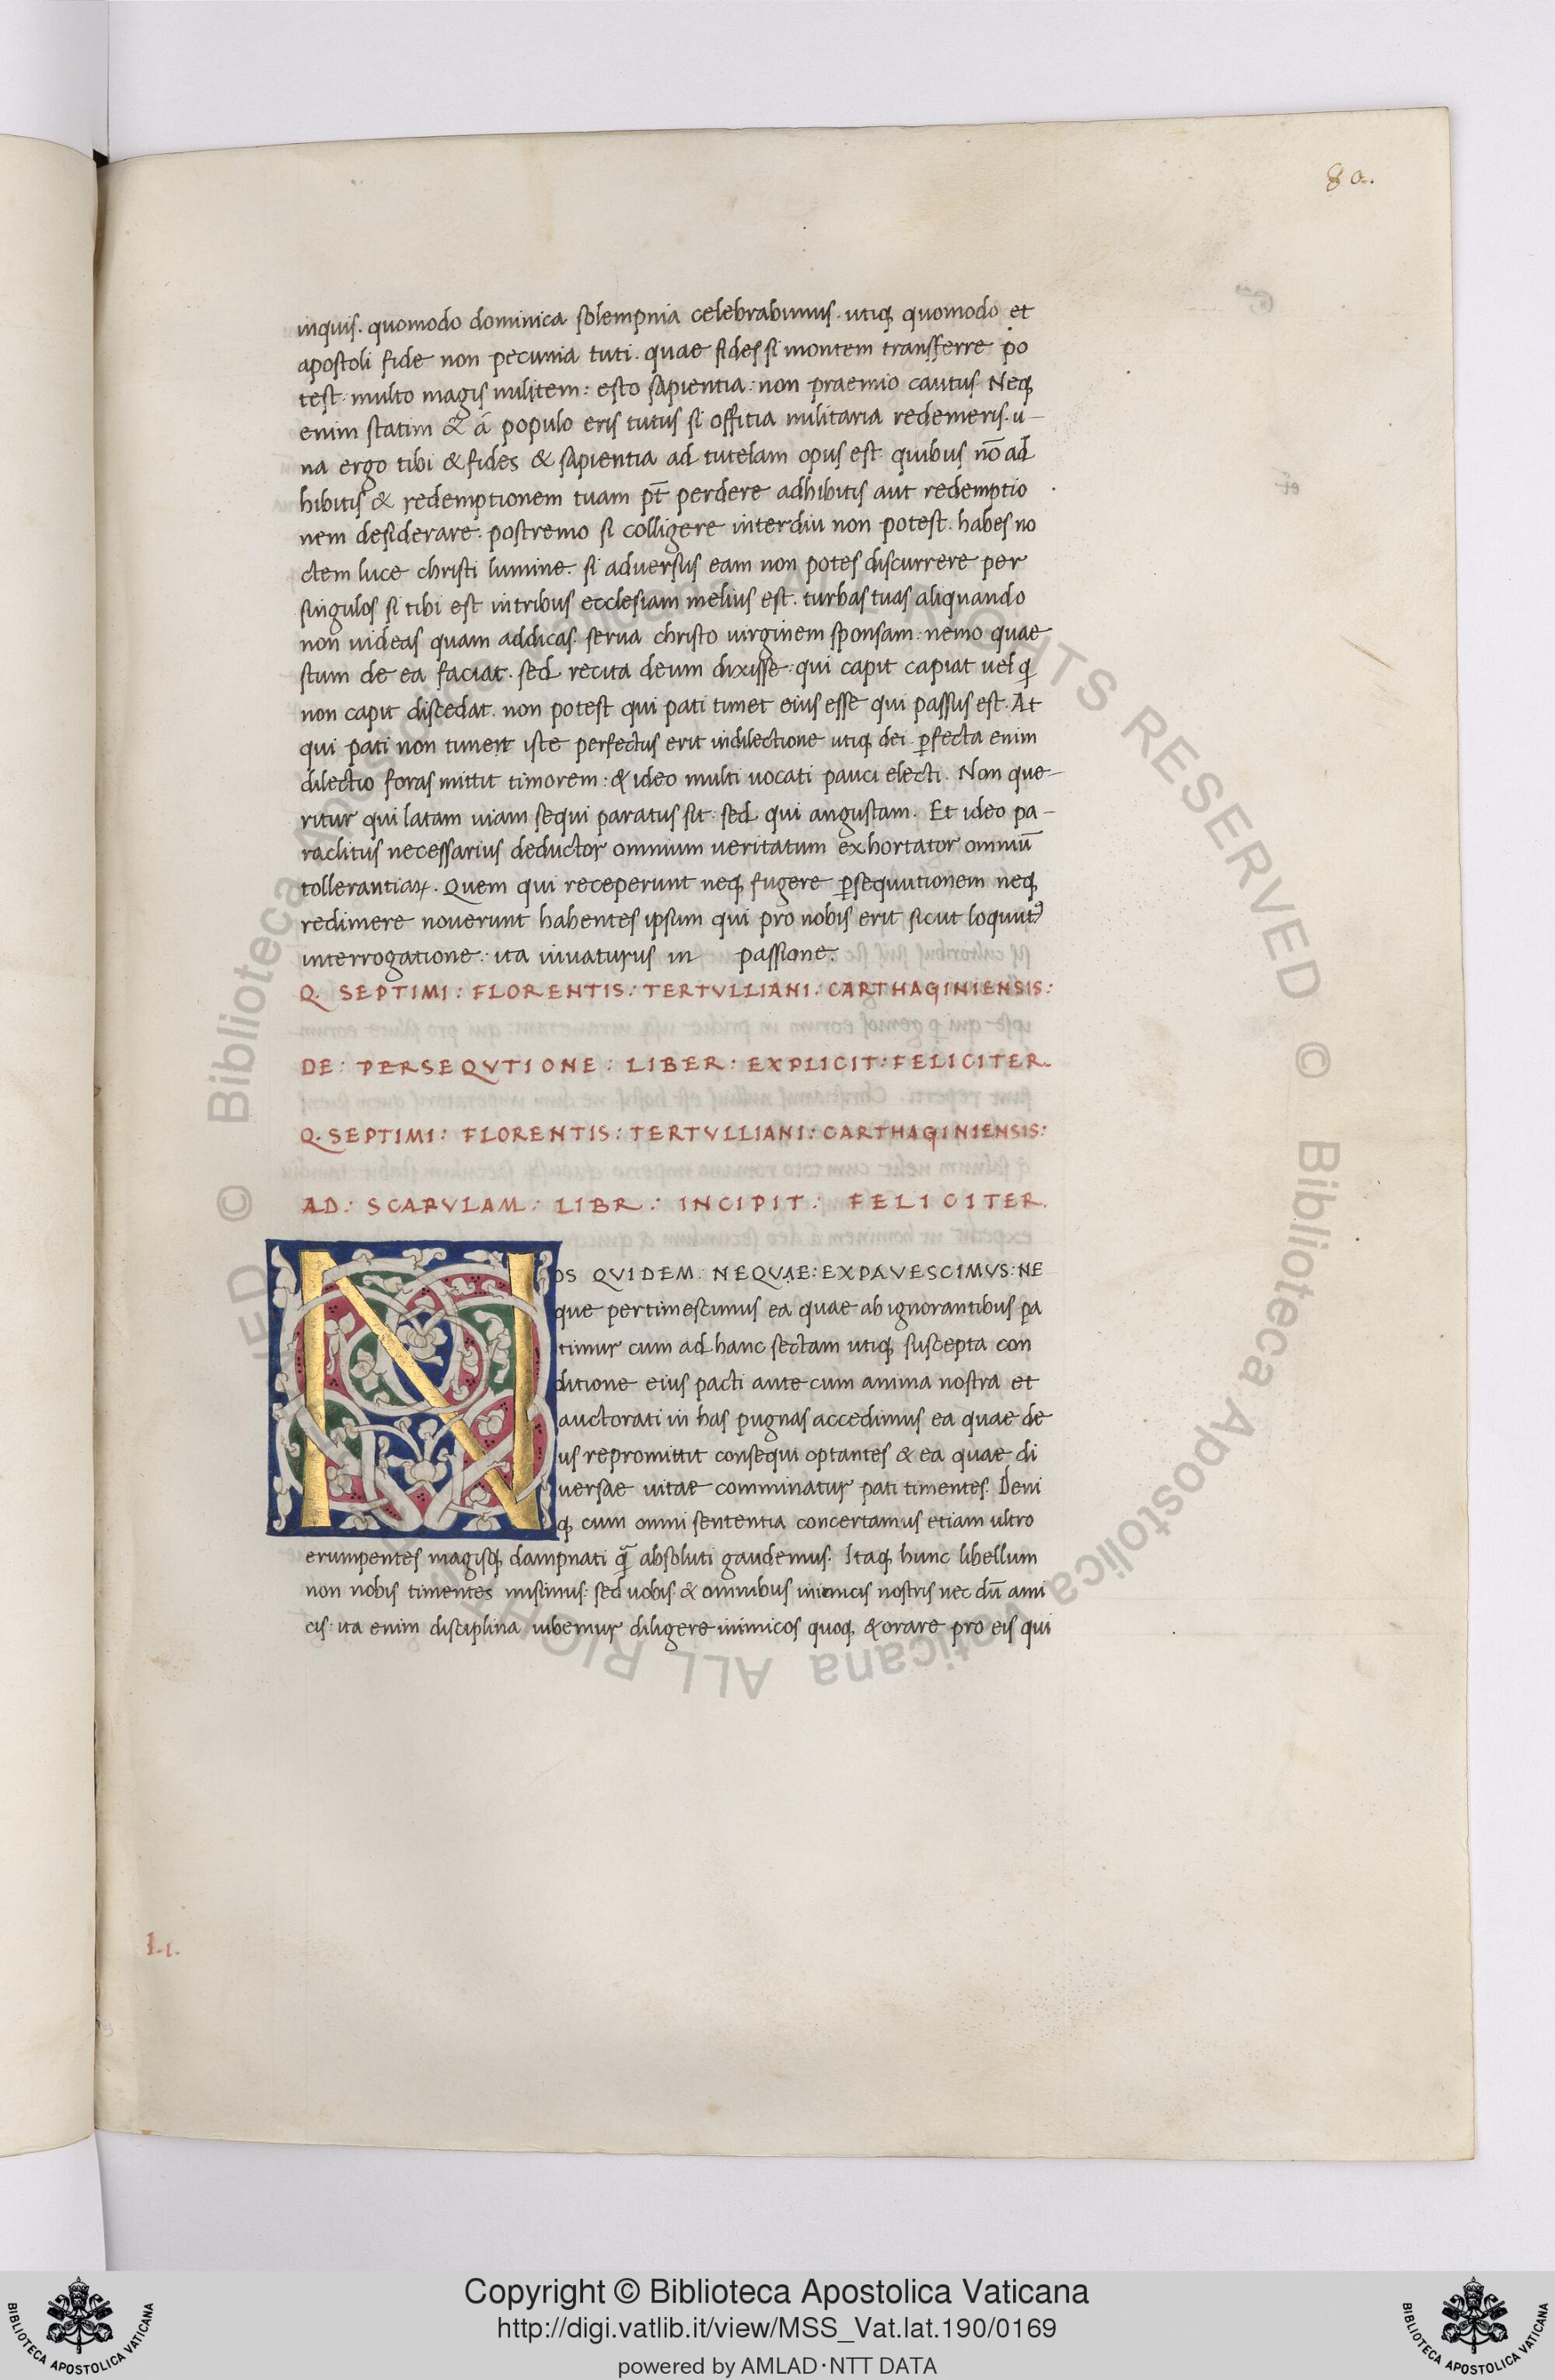 80.
inquis. quomodo dominica solempnia celebrabimus. utiq; quomodo et
apostoli fide non pecunia tuti. quae fides si montem transferre po
test. multo magis militem: esto sapientia: non praemio cautus. Neq;
enim statim & á populo eris tutus si offitia militaria redemeris. u-
na ergo tibi & fides & sapientia ad tutelam opus est. quibus nō ad
hibitis & redemptionem tuam pt̄ perdere adhibitis aut redemptio
nem desiderare. postremo si colligere interdiu non potest. habes no
ctem luce christi lumine. si adversus eam non potes discurrere per
singulos si tibi est in tribus ecclesiam melius est. turbas tuas aliquando
non uideas quam addicas. serua christo uirginem sponsam: nemo quae
stum de ea faciat. sed recita deum dixisse: qui capit capiat uel q
non capit discedat. non potest qui pati timet eius esse qui passus est. At
qui pati non timent iste perfectus erit in dilectione utiq; dei. ꝑfecta enim
dilectio foras mittit timorem: & ideo multi uocati pauci electi. Non que-
ritur qui latam uiam sequi paratus sit: sed qui angustam. Et ideo pa-
raclitus necessarius deductor omnium veritatum exhortator omniū
tollerantiaꝝ. Quem qui receperunt neq; fugere ꝑsequutionem neq;
redimere nouerunt habentes ipsum qui pro nobis erit sicut loquut᷑
interrogatione: ita iuuaturus in passione.
Q. SEPTIMI: FLORENTIS: TERTVLLIANI: CARTHAGINIENSIS:
DE: PERSEQVTIONE: LIBER: EXPLICIT: FELICITER.
Q. SEPTIMI: FLORENTIS: TERTVLLIANI: CARTHAGINIENSIS:
AD: SCAPVLAM: LIBR: INCIPIT: FELICITER.
NOS QVIDEM: NEQVAE: EXPAVESCIMVS: NE
que pertimescimus ea quae ab ignorantibus pa
timur cum ad hanc sectam utiq; suscepta con
ditione eius pacti ante cum anima nostra et
auctorati in has pugnas accedimus ea quae de
us repromittit consequi optantes & ea quae di
uersae uitae comminatur pati timentes. Deni
q; cum omni sententia concertamus etiam ultro
erumpentes magisq; dampnati q̄ absoluti gaudemus. Itaq; hunc libellum
non nobis timentes misimus: sed uobis & omnibus inimicis nostris nec dū ami
cis: ita enim disciplina iubemur diligere inimicos quoq; & orare pro eis qui
L.1.
© Biblioteca Apostolica Vaticana ALL RIGHTS RESERVED © Biblioteca Apostolica Vaticana ALL RIGHTS RESERVED
Copyright © Biblioteca Apostolica Vaticana
http://digi.vatlib.it/view/MSS_Vat.lat.190/0169
powered by AMLAD·NTT DATA
BIBLIOTECA APOSTOLICA VATICANA
BIBLIOTECA APOSTOLICA VATICANA